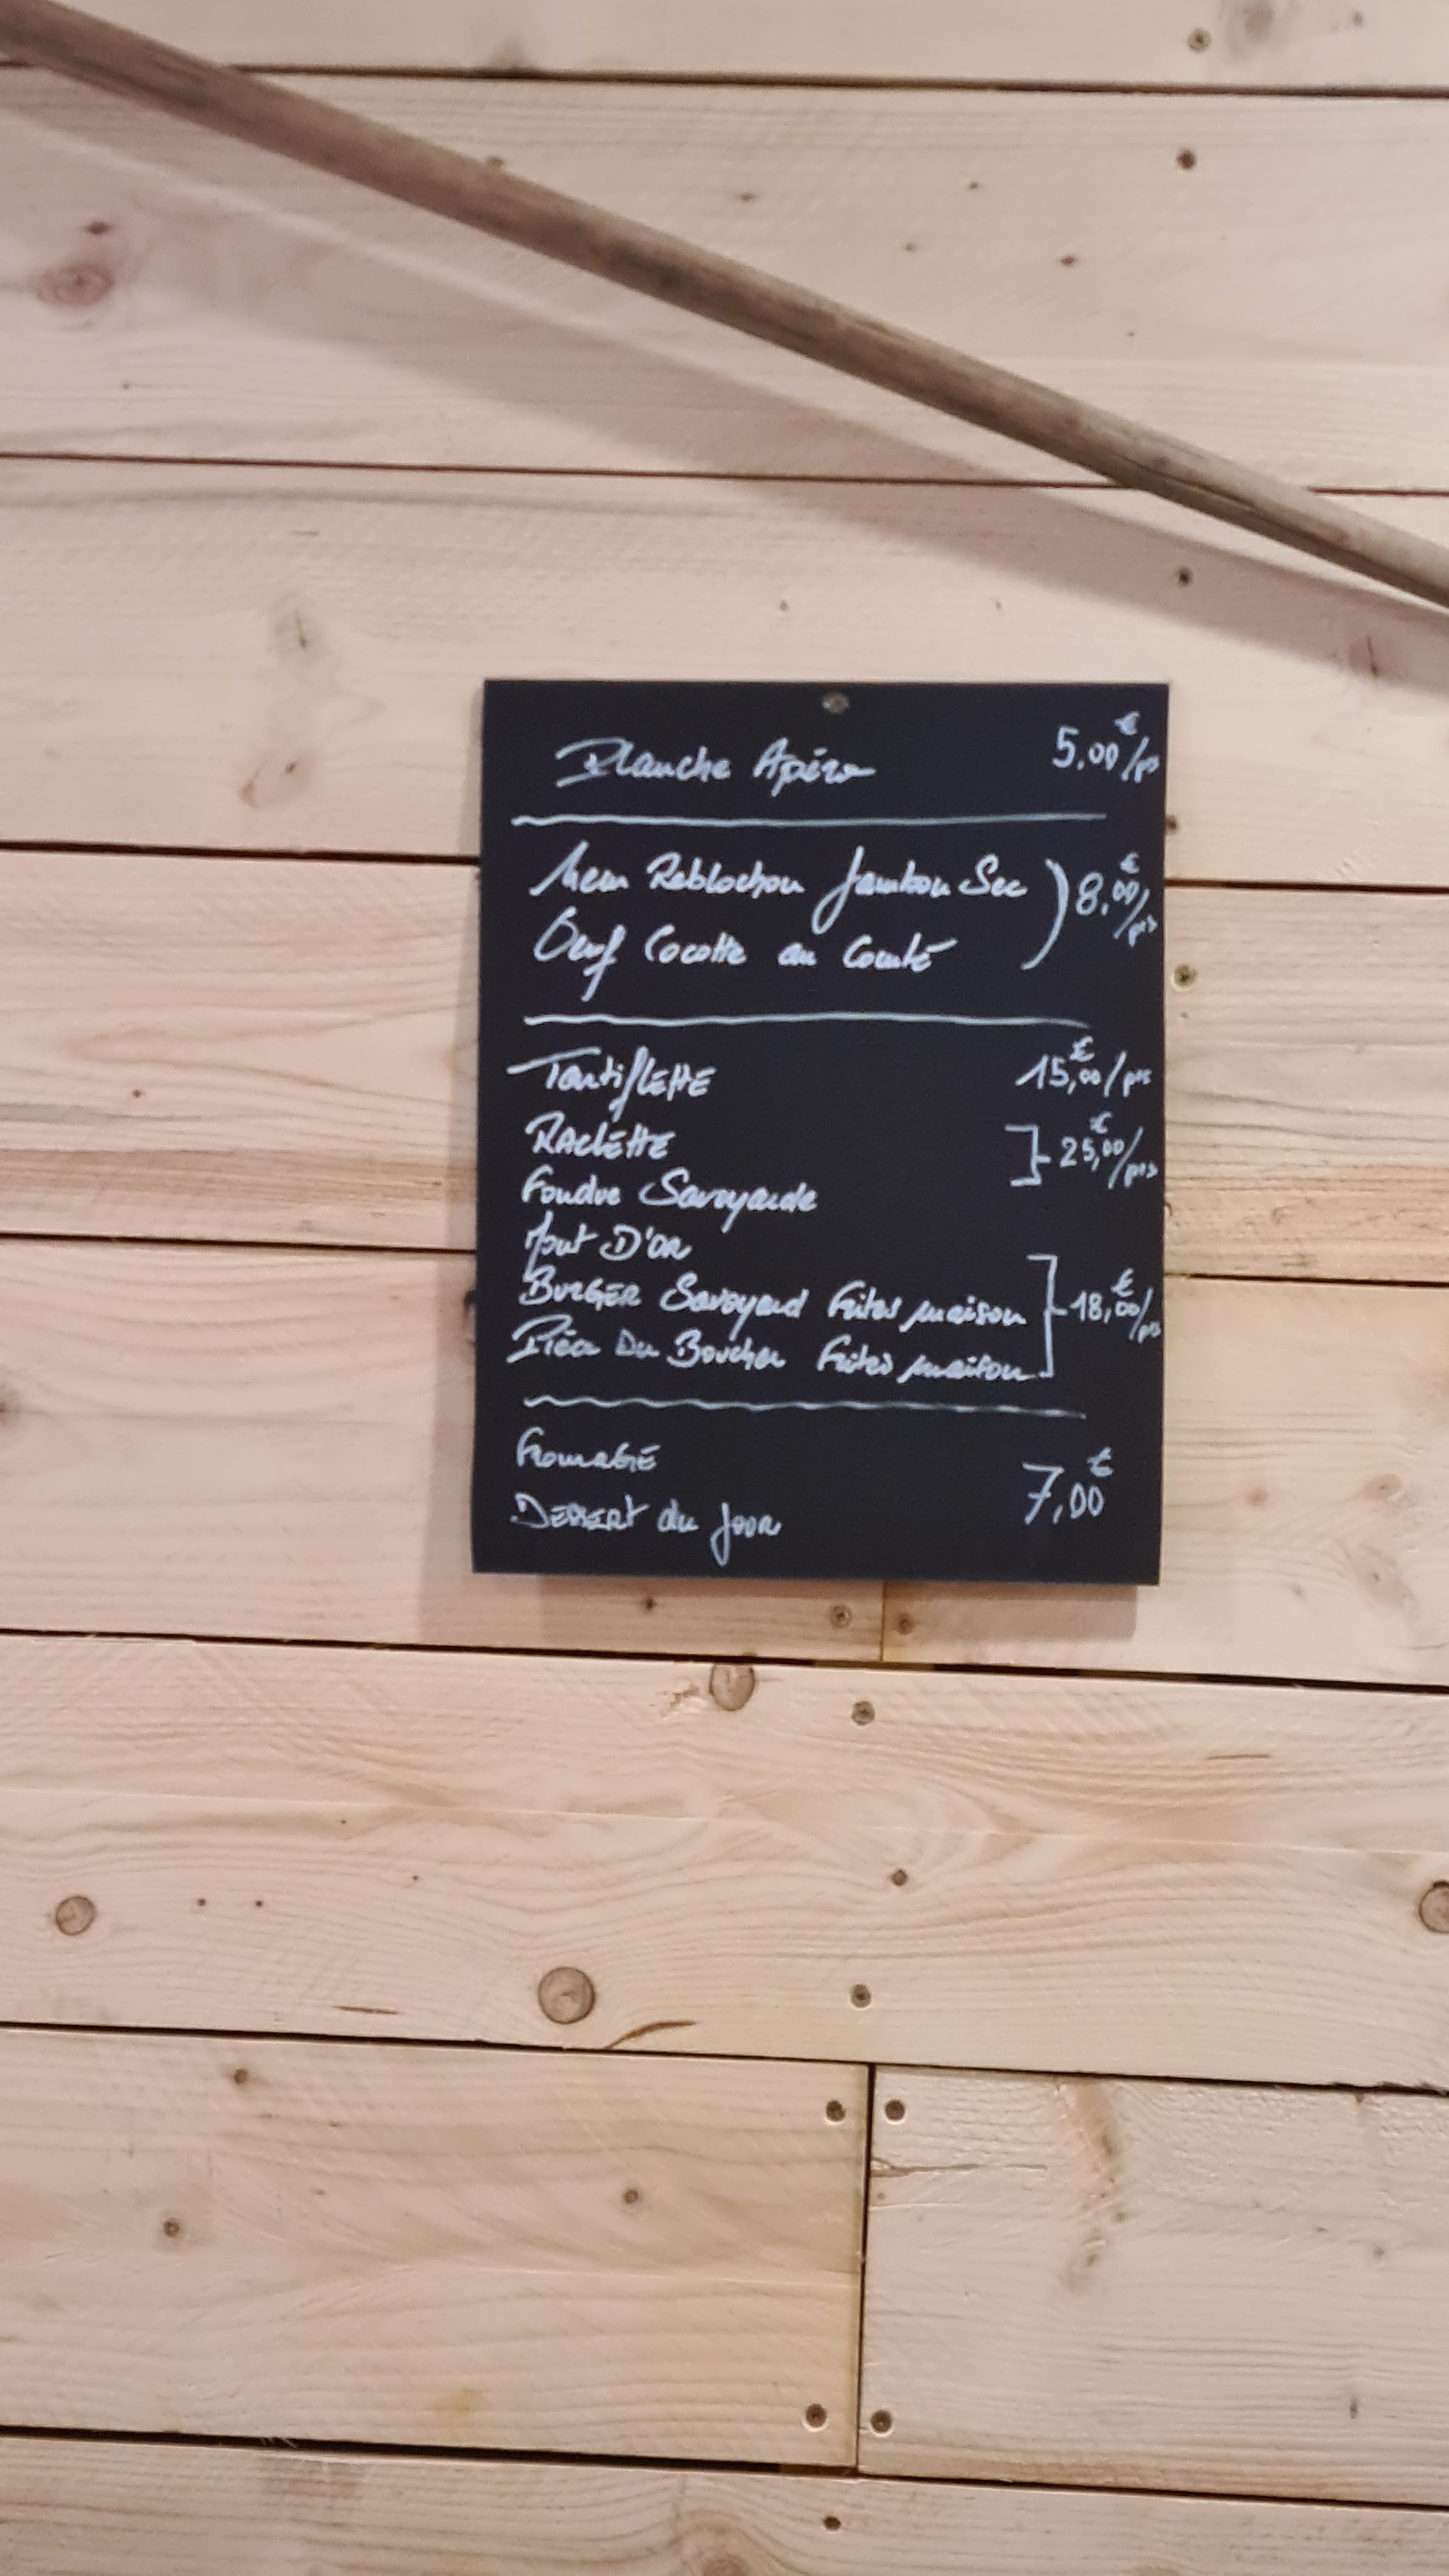 Planche Apéro 5,00€/prs
Nem Reblochon Jambon Sec
Oeuf Cocotte au Comté 8,00€/prs
Tartiflette 15,00€/prs
Raclette
Fondue Savoyarde 25,00€/prs
Mont D'or
Burger Savoyard frites maison 18,00€/prs
Pièce Du Boucher frites maison
Fromage
Dessert du jour 7,00€